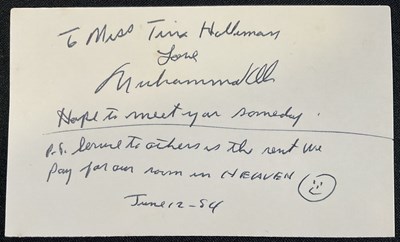 To Miss Tina Holliman
Love
Muhammad Ali
Hope to meet you someday.
P.S. Service to others is the rent we
Pay for our room in HEAVEN
June 12-84